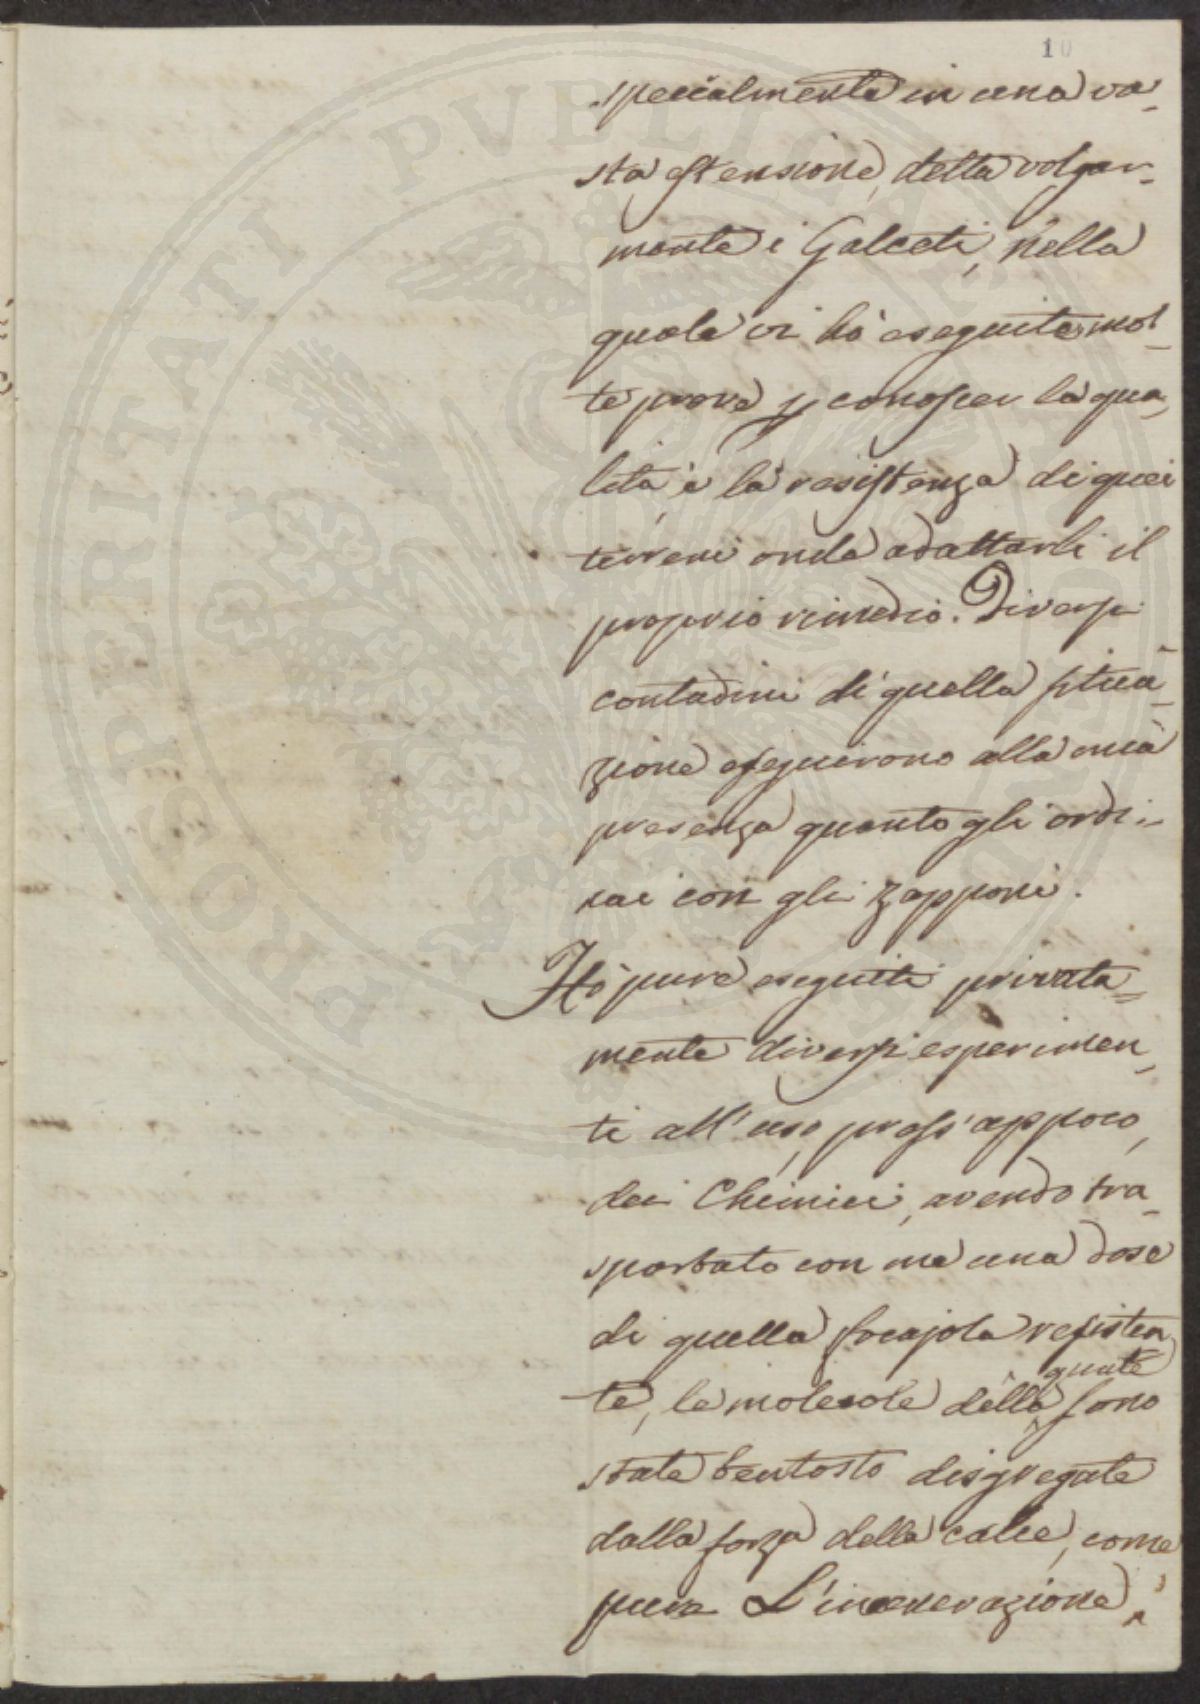 10
specialmente in una va-
sta estensione, detta volgar-
mente i Galceti, nella
quale vi hò eseguite mol-
te prove p conoscer la qua-
lità e la resistenza di quei
terreni onde adattarli il
proprio rimedio. Diversi
contadini di quella situa-
zione eseguirono alla mia
presenza quanto gli ordi-
nai con gli zapponi.
Hò pure eseguiti privata=
mente diversi esperimen-
ti all'uso, press'appoco,
dei Chimici, avendo tra-
sportato con me una dose
di quella focajola resisten
te, le molecole della quale sono
state bentosto disgregate
dalla forza della calce, come
pure L'incenerazione,
PROSPERITATI PVBLICAE